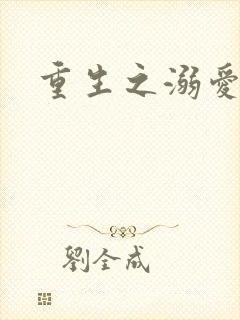 重生之溺愛
劉全成